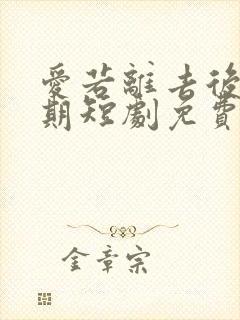 愛若離去後
期短劇免費
金章宗